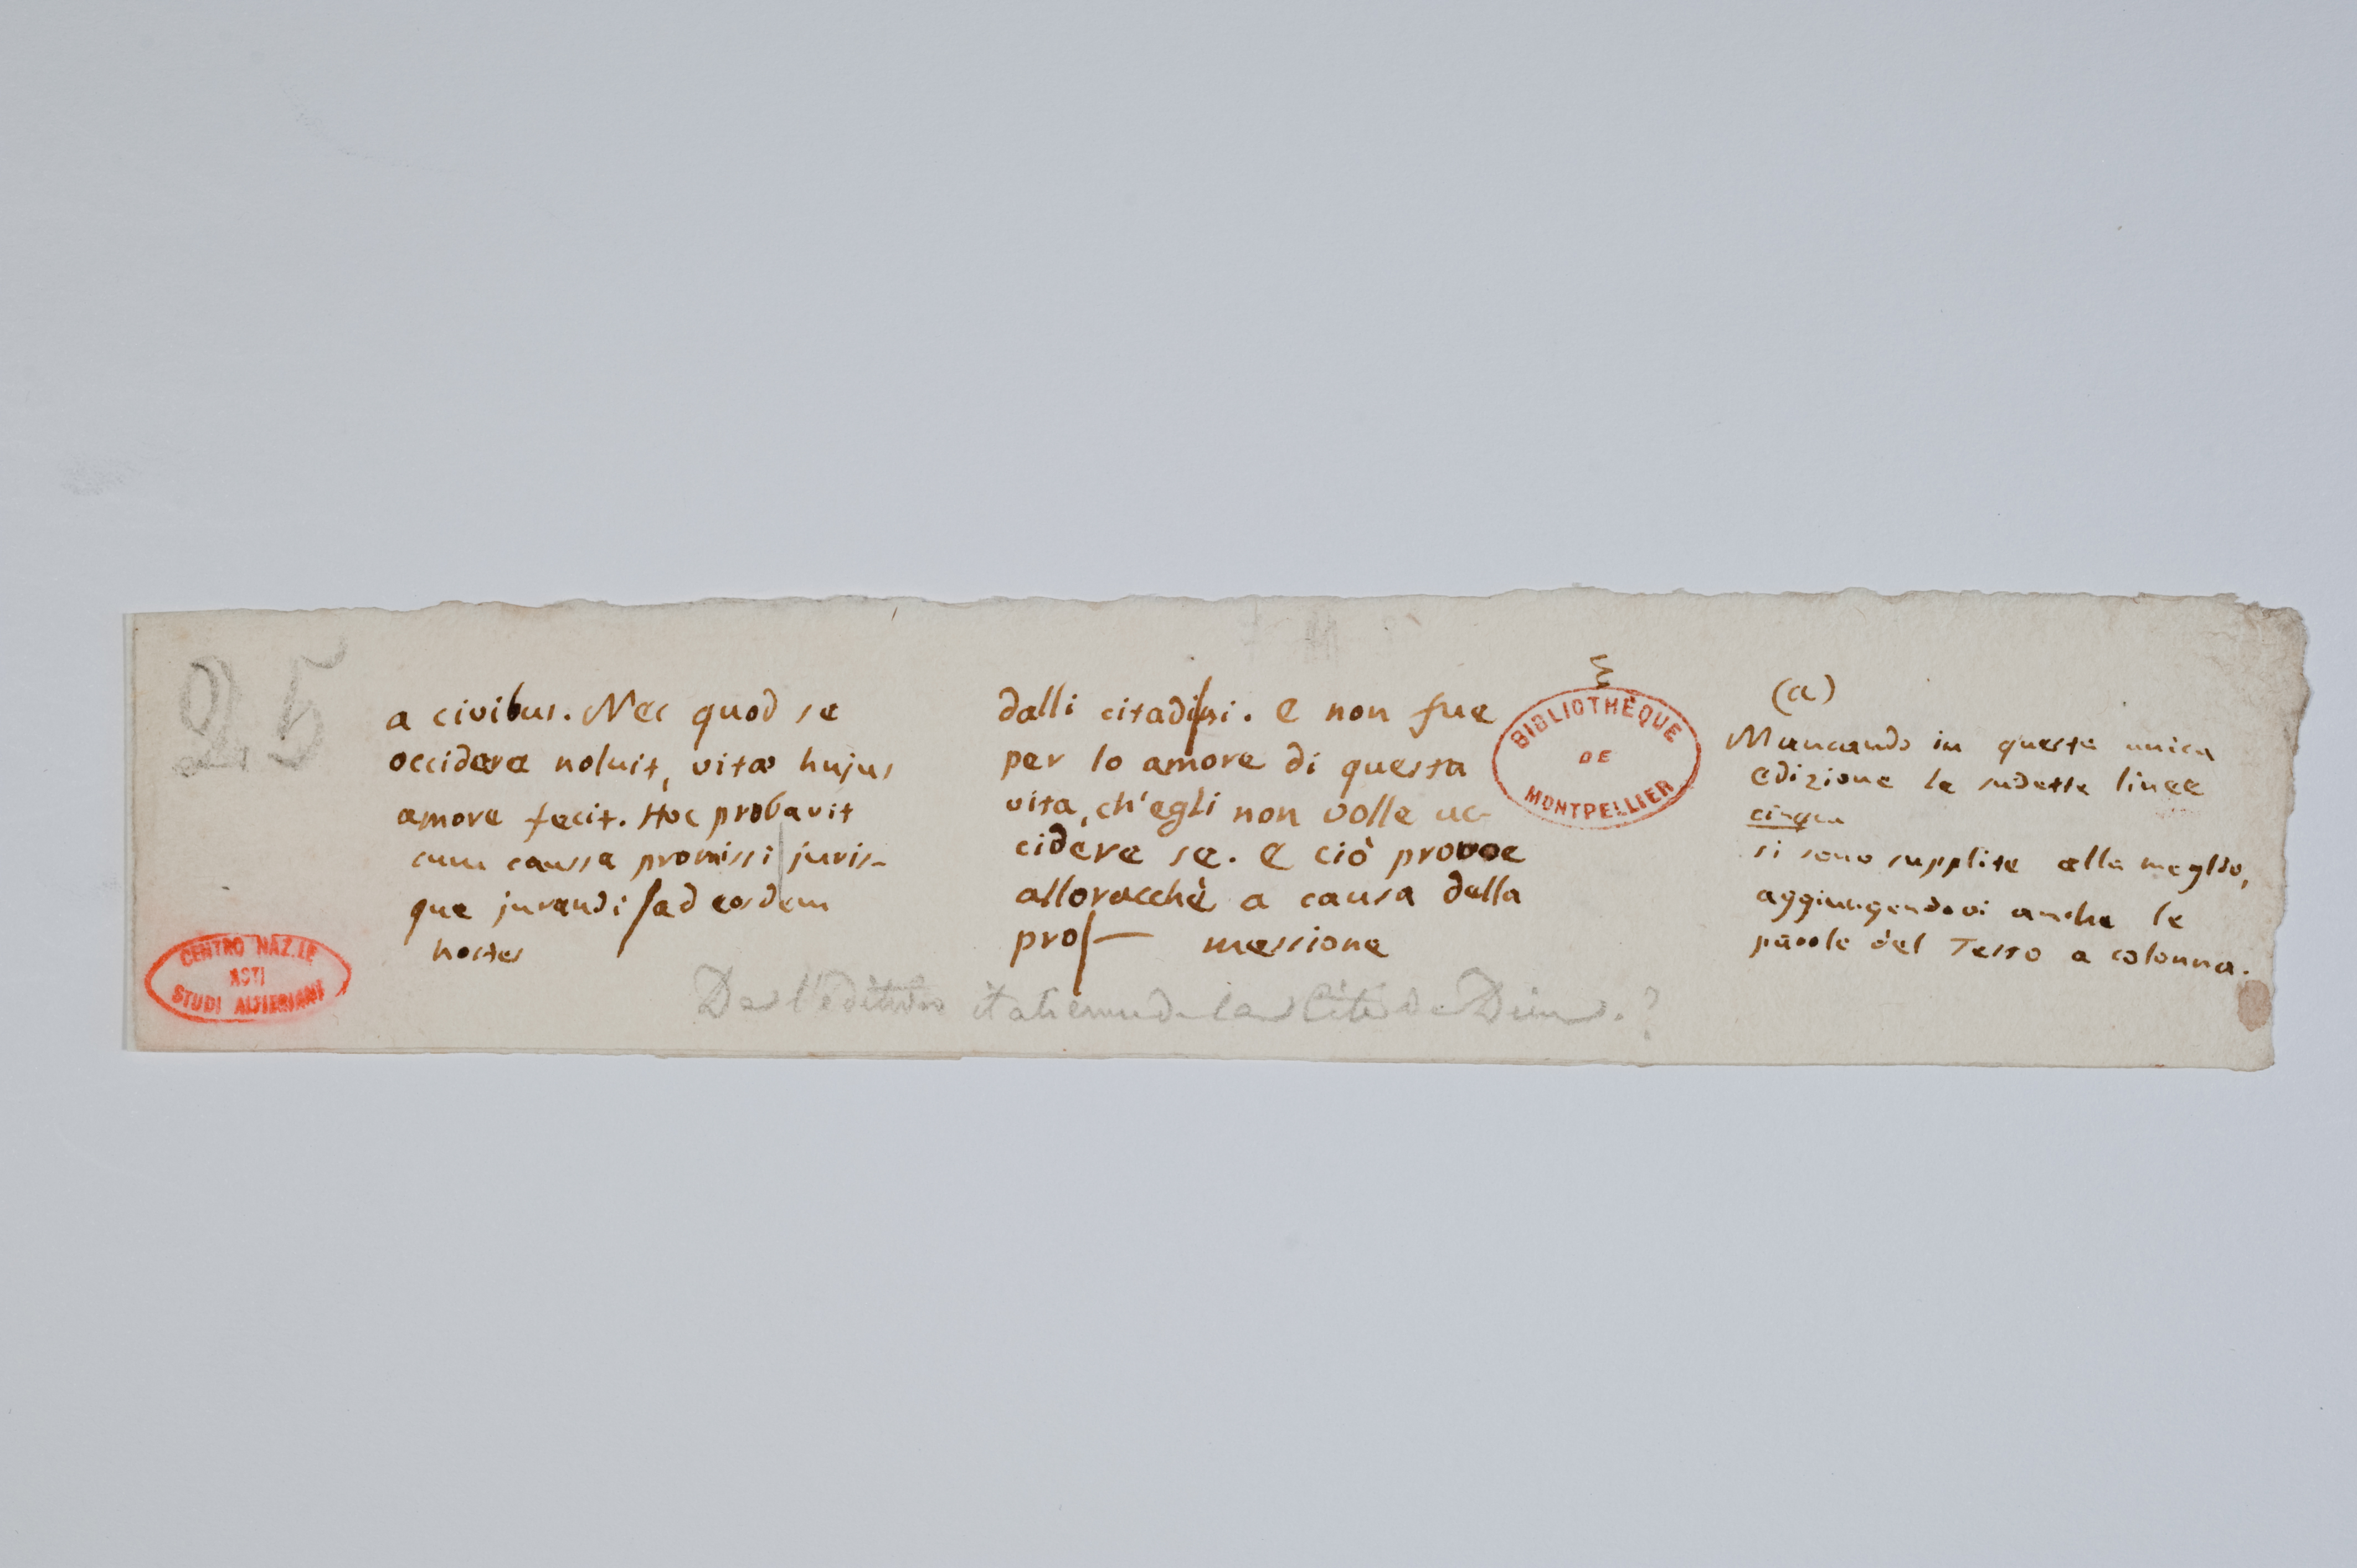 25
a civibus. Nec quod se
occidere noluit, vitæ hujus
amore fecit. Hoc probavit
cum caussa promissi juris-
que jurandi ad eosdem
hostes
dalli citadini. e non fue
per lo amore di questa
vita, ch'egli non volle uc-
cidere se. e ciò provoe
alloracchè a causa della
pro— messione
(a)
Mancando in questa unica
edizione le sudette linee
cinque
si sono supplite alla meglio,
aggiungendovi anche le
parole del Testo a colonna.
De l'edition italienne de la Cité de Dieu.?
BIBLIOTHÈQUE
DE
MONTPELLIER
CENTRO NAZ.LE
ASTI
STUDI ALFIERIANI